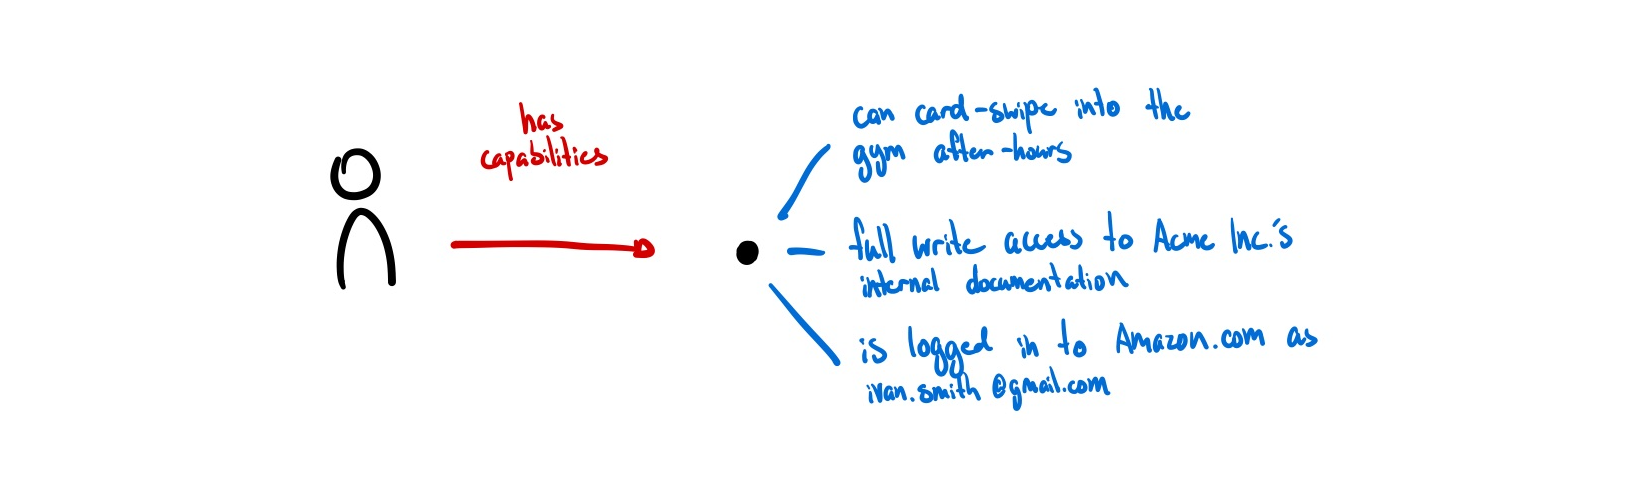 has
capabilities
can card-swipe into the
gym after-hours
full write access to Acme Inc.'s
internal documentation
is logged in to Amazon.com as
ivan.smith@gmail.com